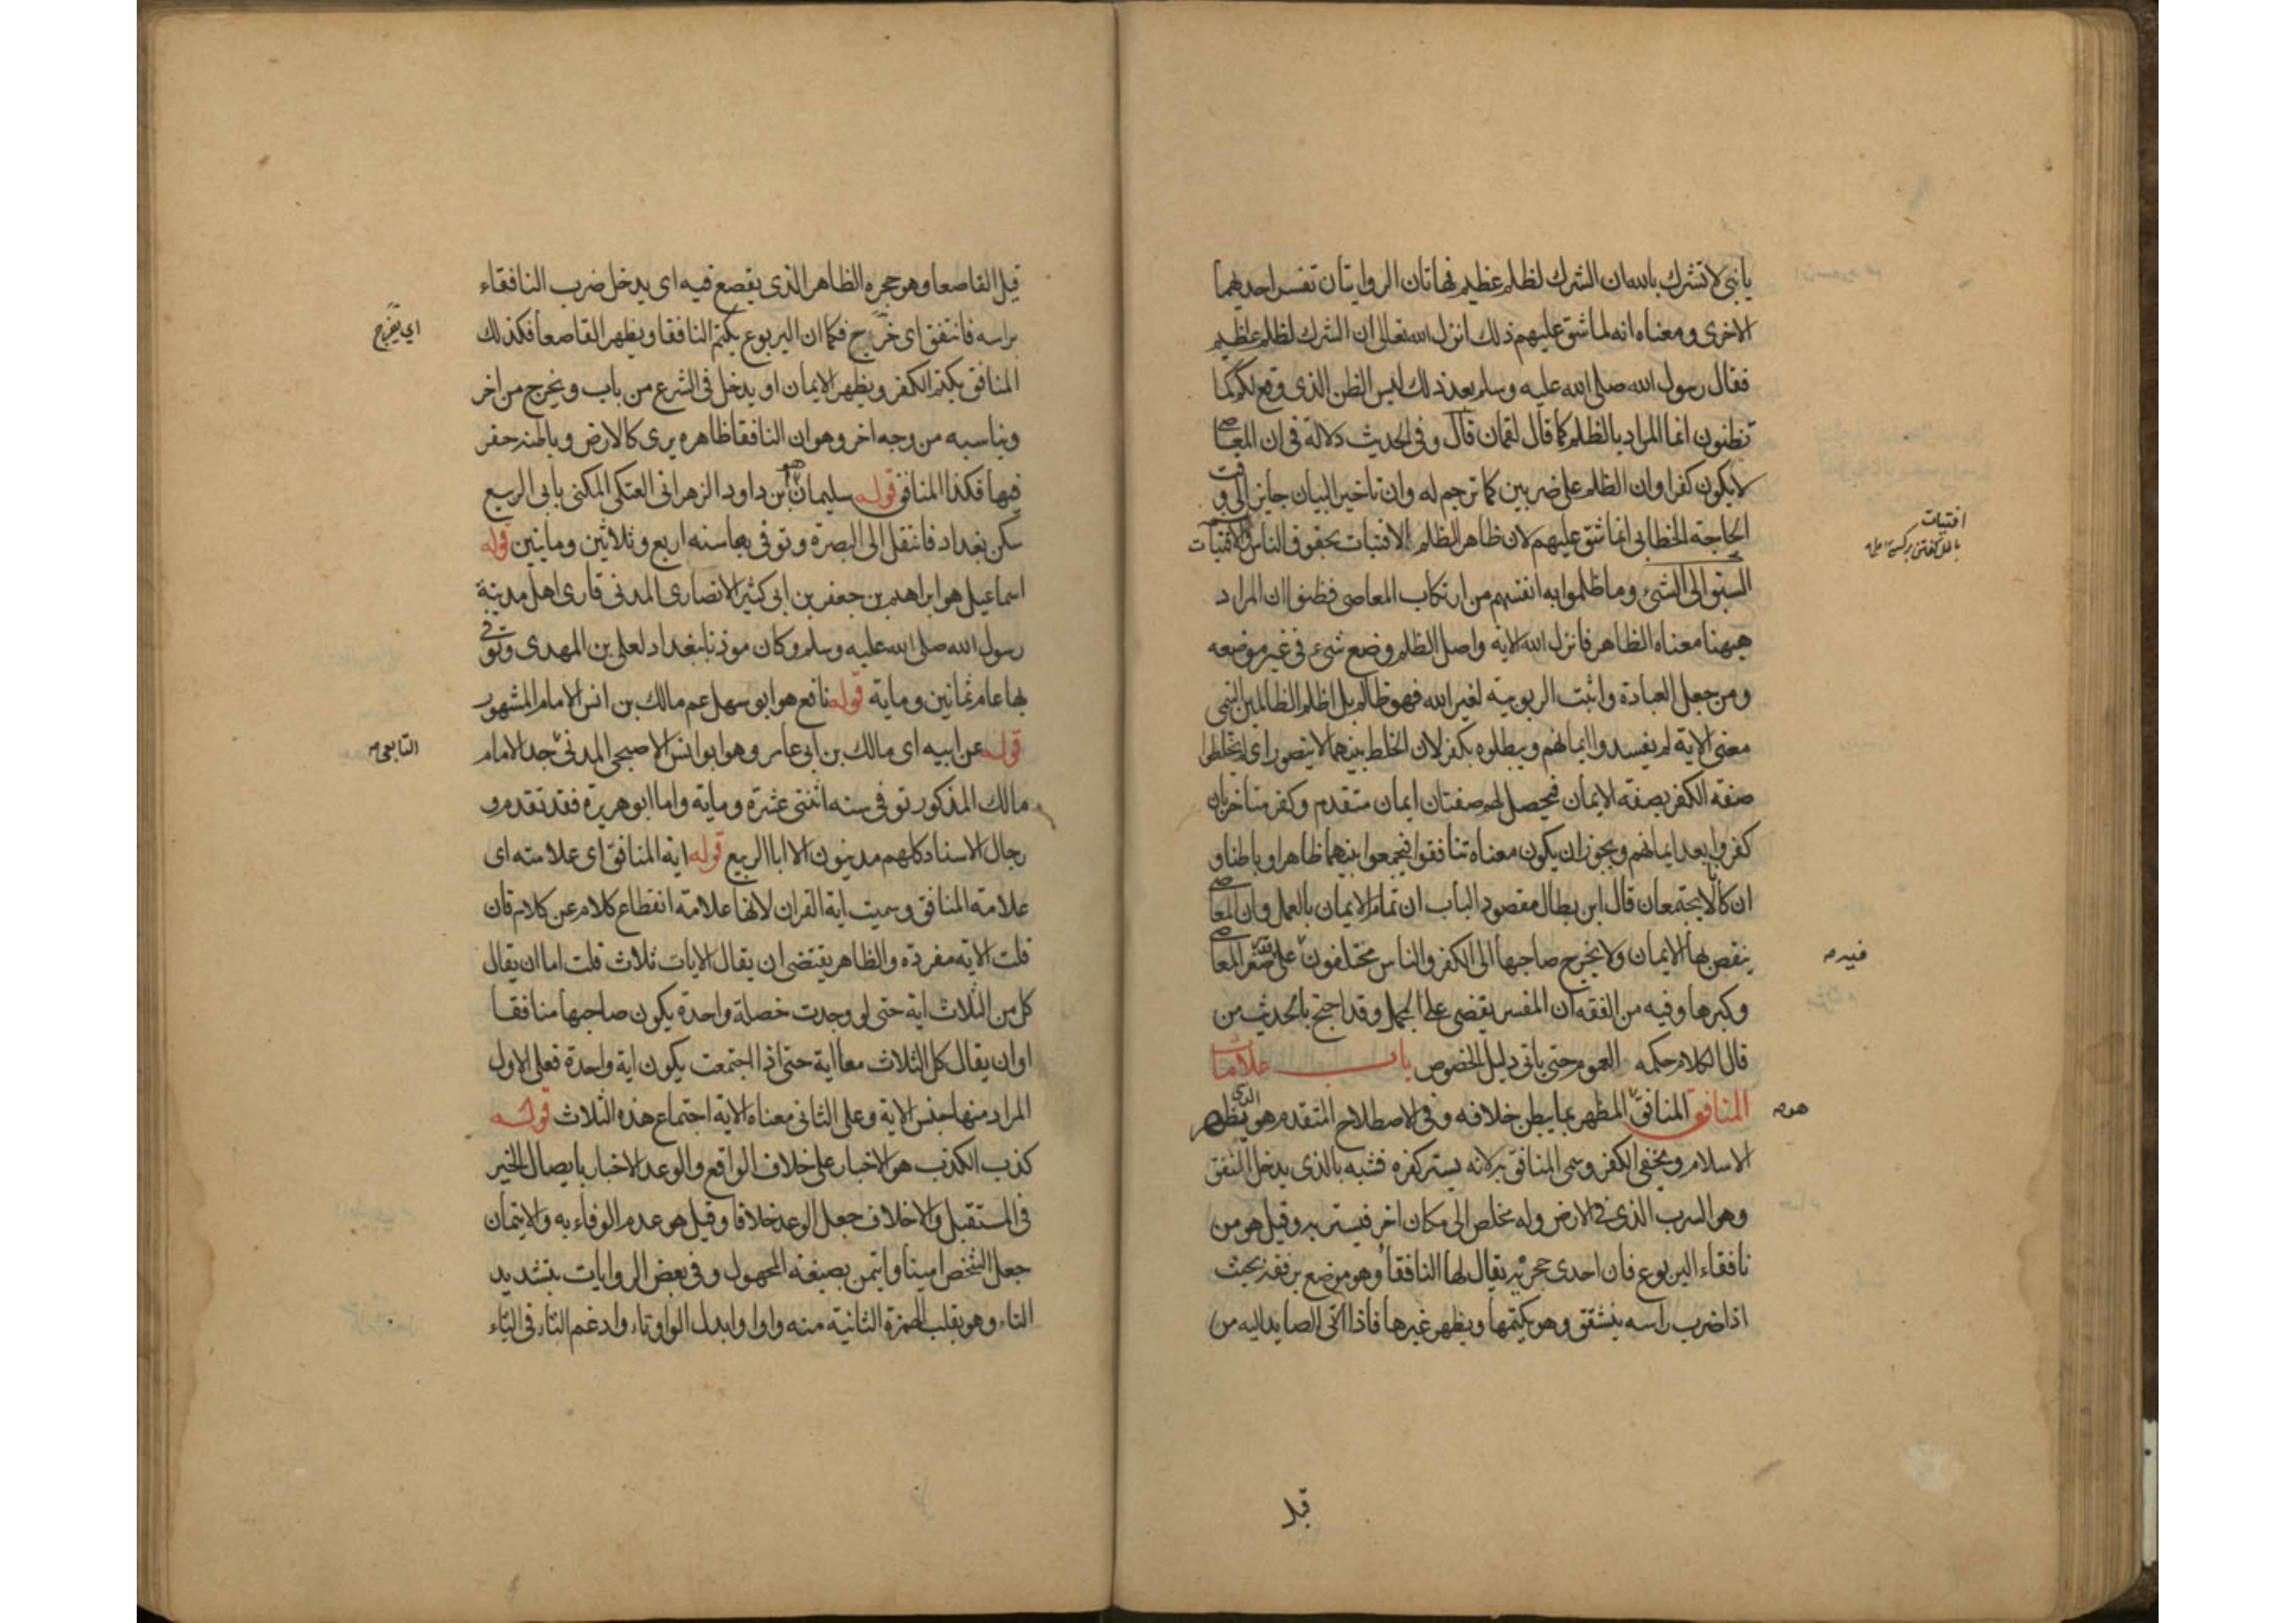 يا بنى لا تشرك بالله ان الشرك لظلم عظيم فهاتان الروايتان تفسر احديهما
الاخرى ومعناه انه لما شق عليهم ذلك انزل الله تعالى ان الشرك لظلم عظيم
فقال رسول الله صلى الله عليه وسلم بعد ذلك ليس الظن الذى وقع لكم كما
تظنون انما المراد بالظلم كما قال لقمان قال وفى الحديث دلالة فى ان المعاصى
لا يكون كفرا وان الظلم على ضربين كما ترجم له وان تاخير البيان جايز الى وقت
الحاجة الخطابى انما شق عليهم لان ظاهر الظلم الافتيات بحقوق الناس والافتيات
افتيات
السبق الى الشىء وما ظلموا به انفسهم من ارتكاب المعاصى فظنوا ان المراد
ههنا معناه الظاهر فانزل الله الاية واصل الظلم وضع شىء فى غير موضعه
ومن جعل العبادة واثبت الربوبية لغير الله فهو ظالم بل اظلم الظالمين التيمى
معنى الاية لم يفسدوا ايمانهم ويبطلوه بكفر لان الخلط بينهما لا يتصور اى لم يخلطوا
صفة الكفر بصفة الايمان فيحصل لهم صفتان ايمان متقدم وكفر متاخر بان
كفروا بعد ايمانهم ويجوز ان يكون معناه تنافقوا فيجمعوا بينهما ظاهرا وباطنا و
ان كانا لا يجتمعان قال ابن بطال مقصود الباب ان تمام الايمان بالعمل وان المعاصى
ينقص بها الايمان ولا يخرج صاحبها الى الكفر والناس مختلفون على صغر المعاصى
فيه صح
وكبرها وفيه من الفقه ان المفسر يقضى على المجمل وقد احتج بالحديث من
قال الكلام حكمه العموم حتى ياتى دليل الخصوص باب علامات
المنافق المنافق المظهر بما يبطن خلافه وفى الاصطلاح المتقدم هو الذى يظهر
هو صح
الاسلام ويخفى الكفر وسمى المنافق به لانه يستر كفره فشبه بالذى يدخل النفق
وهو السرب الذى فى الارض وله مخلص الى مكان اخر فيستتر به وقيل هو من
نافقاء اليربوع فان احدى جحريه يقال لها النافقا وهو موضع يرفقه بحيث
اذا ضرب راسه ينشقق وهو يكتمها ويظهر غيرها فاذا اتى الصايد اليه من
قبل
قبل القاصعا وهو جحره الظاهر الذى يقصع فيه اى يدخل ضرب النافقاء
براسه فانتفق اى خرج فكما ان اليربوع يكتم النافقا ويظهر القاصعا فكذلك
اى يخرج
المنافق يكتم الكفر ويظهر الايمان او يدخل فى الشرع من باب ويخرج من اخر
ويناسبه من وجه اخر وهو ان النافقا ظاهره يرى كالارض وباطنه حفر
فيها فكذا المنافق قوله سليمان ابن داود الزهرانى العتكى المكنى بابى الربيع
سكن بغداد فانتقل الى البصرة وتوفى بها سنه اربع وثلاثين ومايتين قوله
اسماعيل هو ابراهيم بن جعفر بن ابى كثير الانصارى المدنى قارى اهل مدينة
رسول الله صلى الله عليه وسلم وكان موذنا ببغداد لعلى بن المهدى وتوفى
بها عام ثمانين وماية قوله نافع هو ابو سهل عم مالك بن انس الامام المشهور
قوله عن ابيه اى مالك بن ابى عامر وهو ابو انس الاصبحى المدنى جد الامام
التابعى صح
مالك المذكور توفى سنه اثنتى عشرة وماية واما ابو هريرة فقد تقدم و
رجال الاسناد كلهم مدنيون الا ابا الربيع قوله اية المنافق اى علامته اى
علامة المنافق وسميت اية القران لانها علامة انقطاع كلام عن كلام فان
قلت الاية مفردة والظاهر يقتضى ان يقال الايات ثلاث قلت اما ان يقال
كل من الثلاث اية حتى لو وجدت خصلة واحدة يكون صاحبها منافقا
او ان يقال كل الثلاث معا اية حتى اذا اجتمعت يكون اية واحدة فعلى الاول
المراد منها جنس الاية وعلى الثانى معناه الاية اجتماع هذه الثلاث قوله
كذب الكذب هو الاخبار على خلاف الواقع والوعد الاخبار بايصال الخير
فى المستقبل والاخلاف جعل الوعد خلافا وقيل هو عدم الوفاء به والايتمان
جعل الشخص امينا وايتمن بصيغة المجهول وفى بعض الروايات بتشديد
التاء وهو بقلب الهمزة الثانية منه واوا وابدل الواو تاء وادغم التاء فى التاء